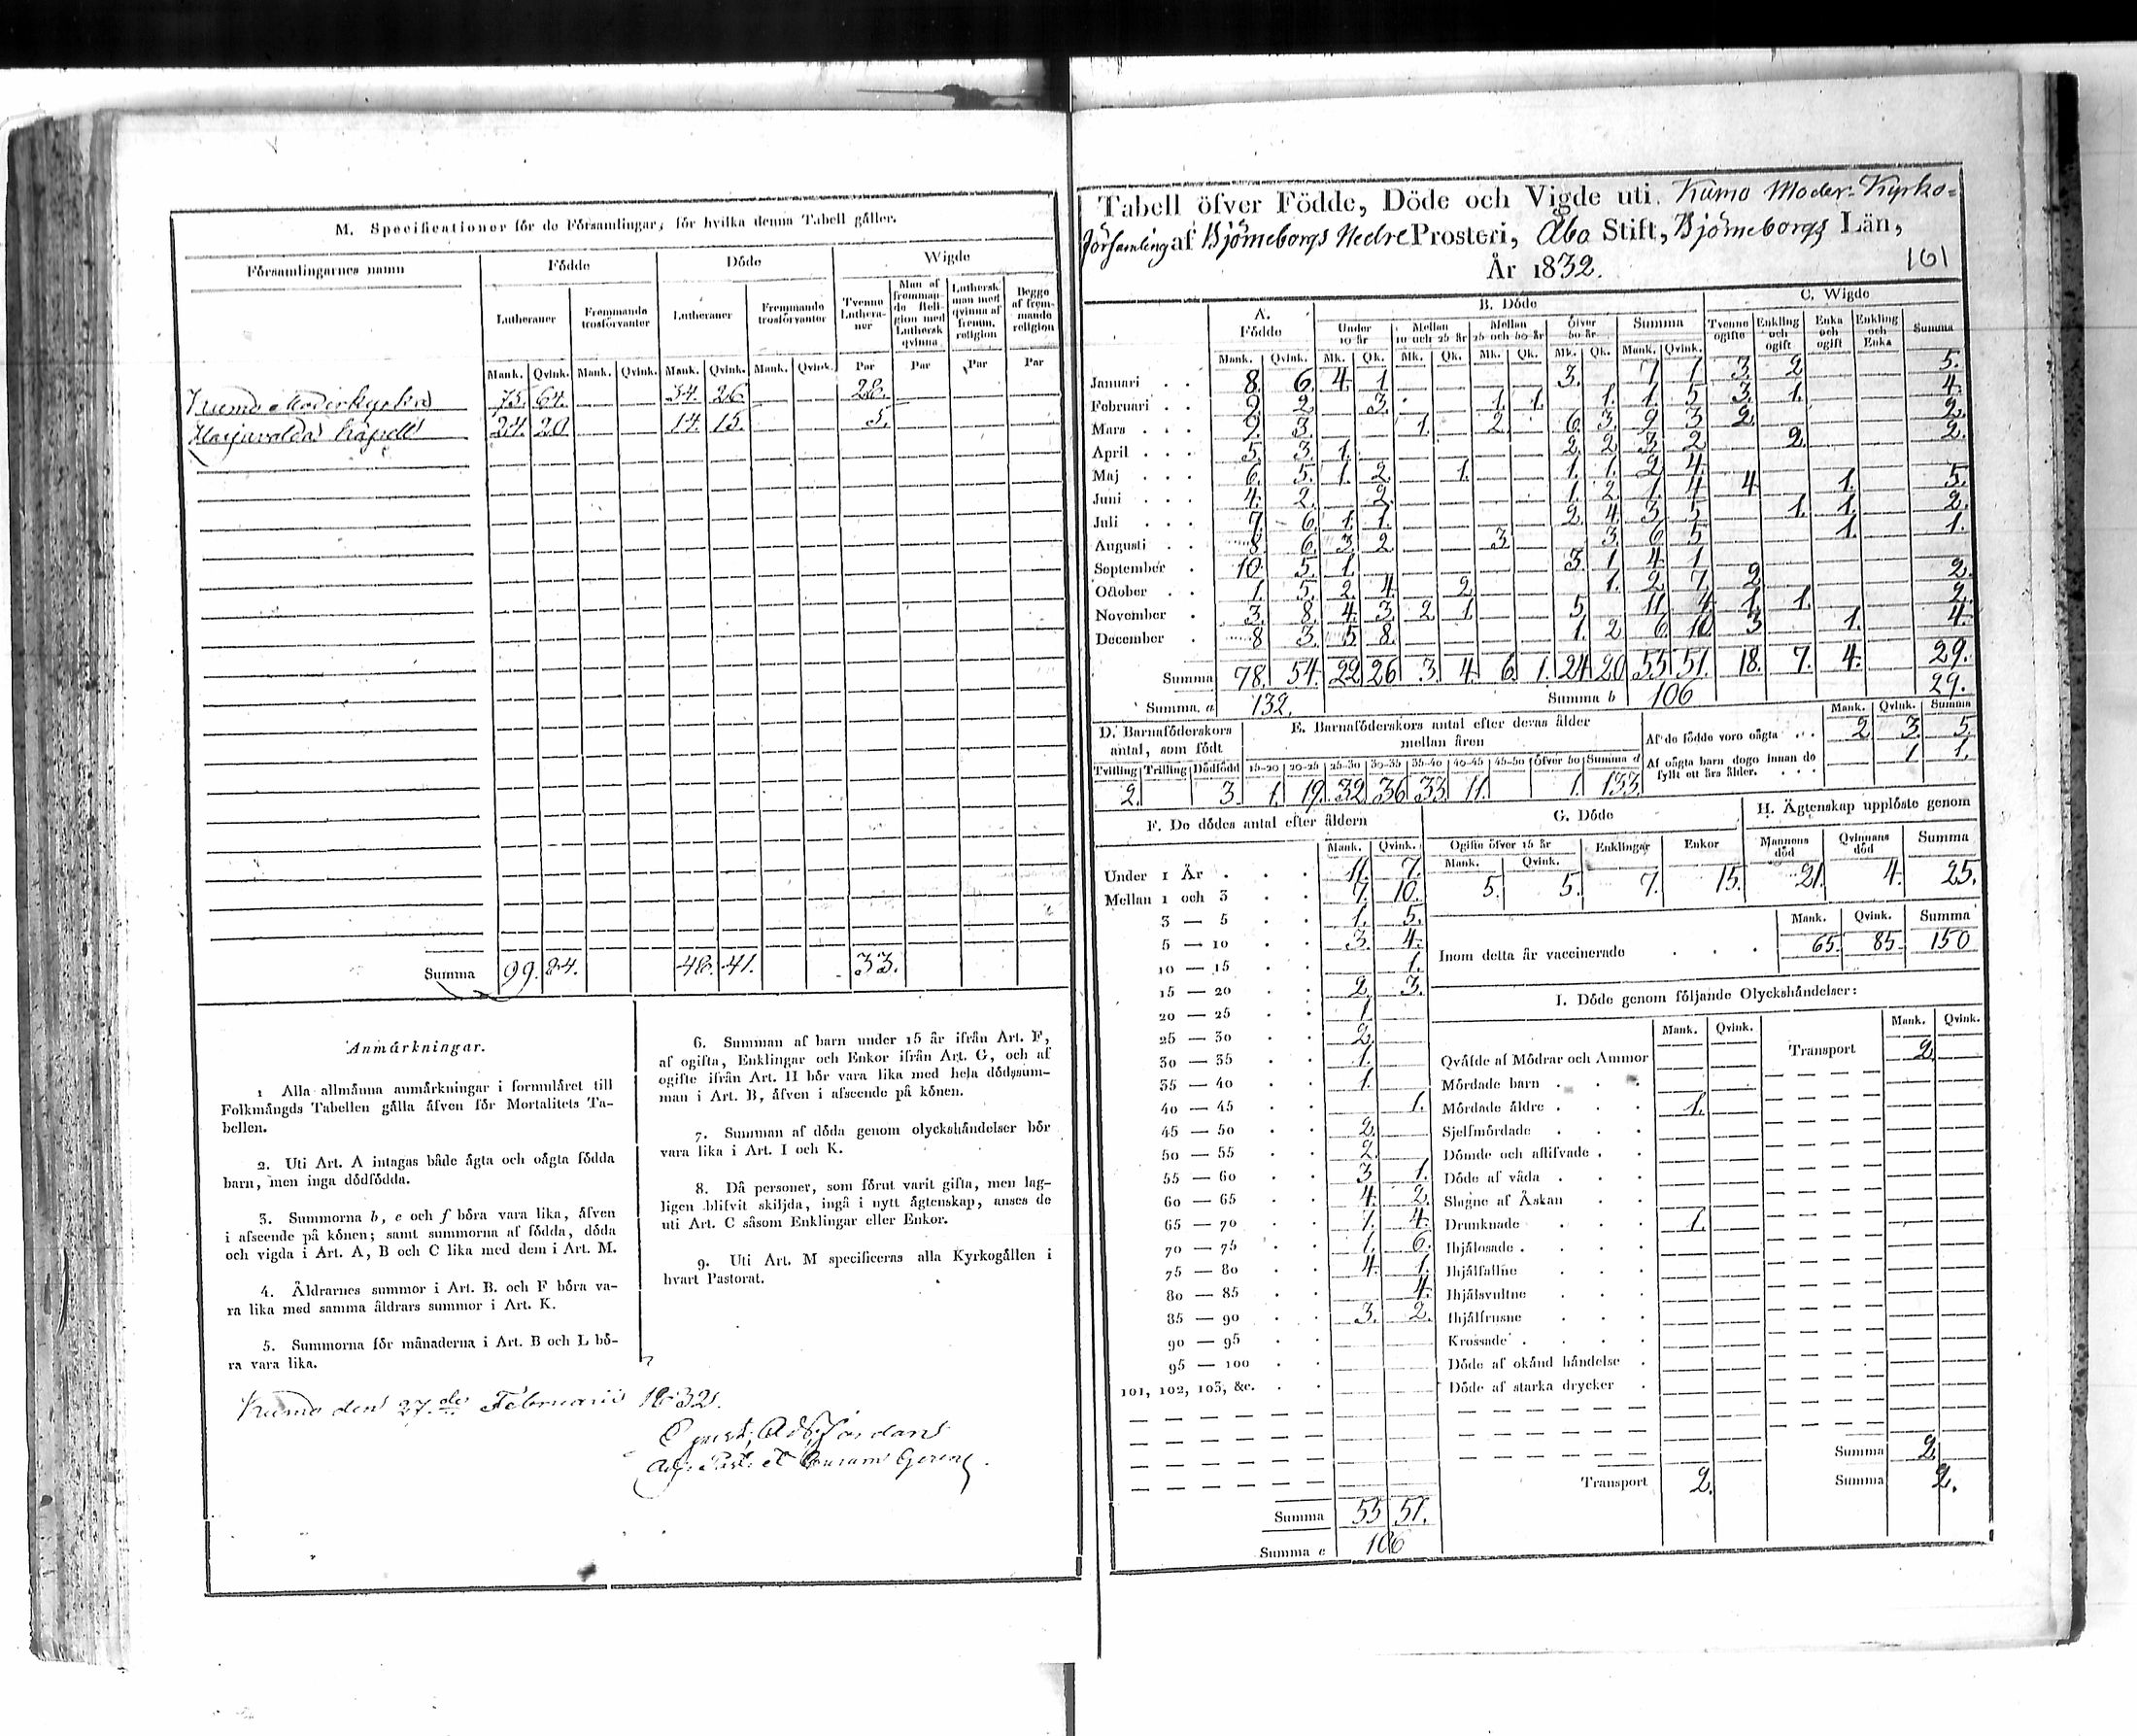 M. Specificationer för de Församlingar, för hvilka denna Tabell gäller.
Församlingarnes namn Födde Döde Wigde
Lutheraner Fremmande trosförvanter Lutheraner Fremmande trosförvanter Tvenne Lutheraner Man af fremmande Religion med Luthersk qvinna Luthersk man med qvinna af fremm. religion Begge af fremmande religion
Mank. Qvink. Mank. Qvink. Mank. Qvink. Mank. Qvink. Par Par Par Par
Kumo Moderkyrka 75. 64. 34. 26. 28.
Harjavalda Capell 24. 20. 14. 15. 5.
Summa 99. 84. 48. 41. 33.
Anmärkningar.
1 Alla allmänna anmärkningar i formuläret till
Folkmängds Tabellen gälla äfven för Mortalitets Ta-
bellen.
2. Uti Art. A intagas både ägta och oägta födda
barn, men inga dödfödda.
3. Summorna b, c och f böra vara lika, äfven
i afseende på könen; samt summorna af födda, döda
och vigda i Art. A, B och C lika med dem i Art. M.
4. Äldrarnes summor i Art. B. och F böra va-
ra lika med samma äldrars summor i Art. K.
5. Summorna för månaderna i Art. B och L bö-
ra vara lika.
6. Summan af barn under 15 år ifrån Art. F,
af ogifta, Enklingar och Enkor ifrån Art. G, och af
ogifte ifrån Art. H bör vara lika med hela dödssum-
man i Art. B, äfven i afseende på könen.
7. Summan af döda genom olyckshändelser bör
vara lika i Art. I och K.
8. Då personer, som förut varit gifta, men lag-
ligen blifvit skiljda, ingå i nytt ägtenskap, anses de
uti Art. C såsom Enklingar eller Enkor.
9. Uti Art. M specificeras alla Kyrkogällen i
hvart Pastorat.
Kumo den 27.de Februarii 1832.
Tabell öfver Födde, Döde och Vigde uti Kumo Moder-Kyrko-
församling af Björneborgs Nedre Prosteri, Åbo Stift, Björneborgs Län,
År 1832. 161
A. Födde B. Döde C. Wigde
Under 10 år Mellan 10 och 25 år Mellan 25 och 50 år Öfver 50 år Summa Tvenne ogifte Enkling och ogift Enka och ogift Enkling och Enka Summa
Mank. Qvink. Mk. Qk. Mk. Qk. Mk. Qk. Mk. Qk. Mank. Qvink.
Januari 8. 6. 4. 1. 3. 7 1 3. 2 5.
Februari 9. 2. 3. 1. 1. 1. 1. 5 3. 1. 4.
Mars 9. 3. 1. 2. 6. 3. 9 3 2. 2.
April 5. 3. 1. 2. 2 3 2 2. 2.
Maj 6. 5. 1. 2. 1. 1. 1. 2 4.
Juni 4. 2. 2. 1. 2. 1. 4 4 1. 5.
Juli 7. 6. 1. 1. 2. 4. 3 5 1. 1. 2.
Augusti 8 6. 3. 2. 3. 3. 6 5 1. 1.
September 10. 5. 1. 3. 1. 4. 1
October 1. 5. 2. 4. 2. 1. 2 7. 2 2.
November 3. 8. 4. 3. 2. 1. 5. 11 4. 1. 1. 2.
December 8 3. 5 8. 1. 2 6. 10 3 1. 4.
Summa 78. 54. 22 26 3. 4. 6. 1. 24 20 55 51. 18. 7. 4. 29.
Summa a 132. Summa b 106 29.
D. Barnaföderskors antal, som födt
E. Barnaföderskors antal efter deras ålder mellan åren
Tvilling Trilling Dödfödd 15-20 20-25 25-30 30-35 35-40 40-45 45-50 Öfver 50 Summa d
2. 3. 1. 19. 32. 36 33 11. 1. 133.
Mank. Qvink. Summa
Af de födde voro oägta 2 3. 5.
Af oägta barn dogo innan de fyllt ett års ålder. 1 1.
F. De dödes antal efter åldern
Mank. Qvink.
Under 1 År 11. 7.
Mellan 1 och 3 7. 10.
3 — 5 1. 5.
5 — 10 3. 4.
10 — 15 1.
15 — 20 2. 3.
20 — 25 1
25 — 30 2.
30 — 35 1.
35 — 40 1.
40 — 45 1.
45 — 50 2.
50 — 55 2.
55 — 60 3 1.
60 — 65 4. 2.
65 — 70 7. 4.
70 — 75 1. 6.
75 — 80 4. 1.
80 — 85 4.
85 — 90 3. 2.
90 — 95
95 — 100
101, 102, 103, &c.
Summa 55 51.
Summa c 106
G. Döde
Ogifte öfver 15 år Enklingar Enkor
Mank. Qvink.
5. 5. 7. 15.
H. Ägtenskap upplöste genom
Mannens död Qvinnans död Summa
21. 4. 25.
Mank. Qvink. Summa
Inom detta år vaccinerade 65. 85. 150
I. Döde genom följande Olyckshändelser:
Mank. Qvink. Mank. Qvink.
Qväfde af Mödrar och Ammor Transport 2
Mördade barn
Mördade äldre 1.
Sjelfmördade
Dömde och aflifvade
Döde af våda
Slagne af Åskan
Drunknade 1.
Ihjälosade
Ihjälfallne
Ihjälsvultne
Ihjälfrusne
Krossade
Döde af okänd händelse
Döde af starka drycker
Summa 2
Transport 2. Summa 2.